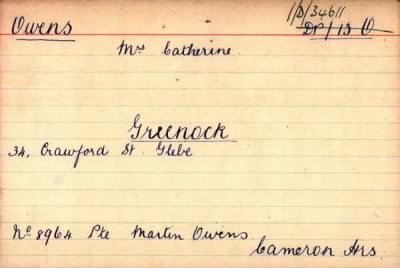 1/D/34611
Owens
DP/13 O
Mrs Catherine.
Greenock
34, Crawford St. Glebe
No 8964 Pte Martin Owens.
Cameron Hrs.